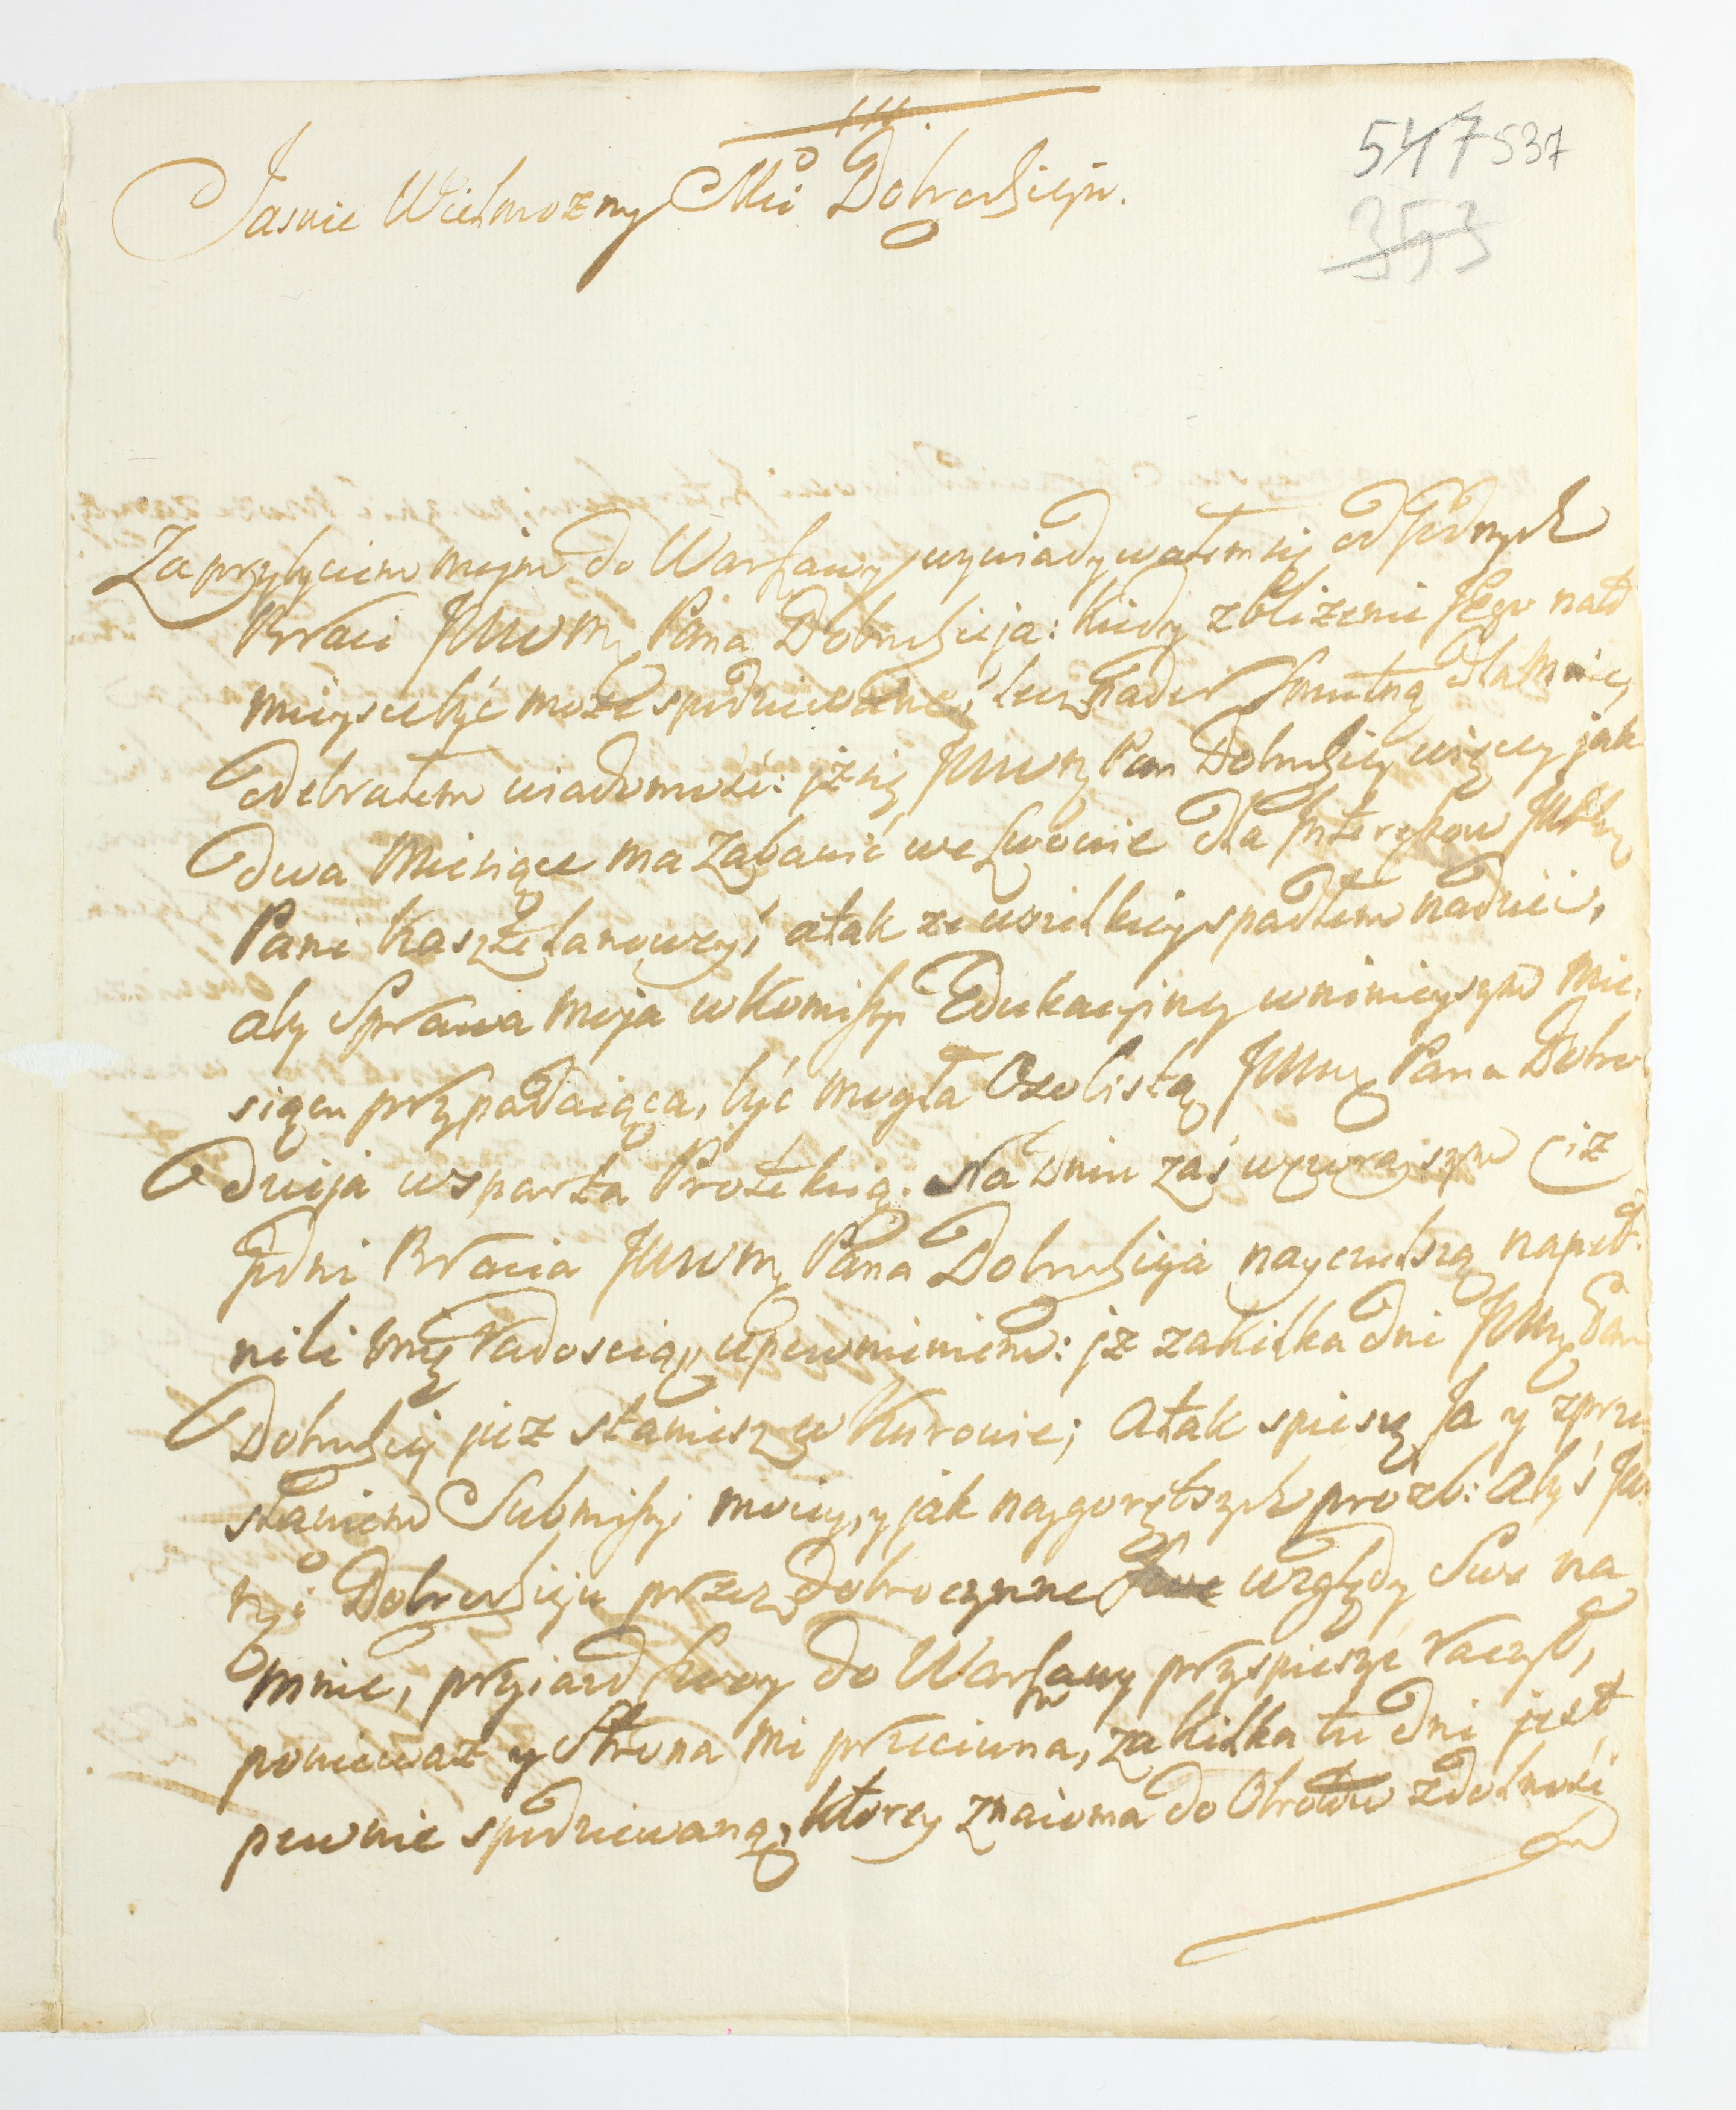 547 537
353
Jasnie Wielmozny Mci Dobrodzieju.
Za przybyciem moim do Warszawy wywiadywałem się od JPdnych
Braci JWWMę Pana Dobrodzieja: kiedy zbliżenie JEgo nad
mieysce być może spodziewane; lecz nader smutną dla mnie
odebrałem wiadomość: jż się JWWMę Pan Dobrodziey więcey jak
dwa Miesiące ma zabawić we Lwowie dla Jnteressow
Pani Kasztelanowey; atak ze wszelkiey spadłem nadziei,
aby Sprawa moja w Komissyi Edukacyiney w ninieyszym Mie-
siącu przypadaiąca, być mogła Osobistą JWWMę Pana Dobro-
dzieja wsparta Protekcią. Na dniu zaś wczorayszym ciż
JPdni Bracia JWWMę Pana Dobrodzieja nayczulszą napeł-
nili mię radoscią, upewnieniem: jż za kilka dni JWWMę Pan
Dobrodziey już staniesz w Kurowie; Atak spieszę Ja y z prze-
słaniem Submissyi moiey, y jak naygorętszych prozb: Abyś
Dobrodzieju przez dobroczynne względy Swe na
mnie, przyiazd Swoy do Warszawy przyspieszyć raczył,
ponieważ y Strona mi przeciwna, za kilka tu dni jest
pewnie spodziewaną, ktorey znaioma do Obrotów zdolność